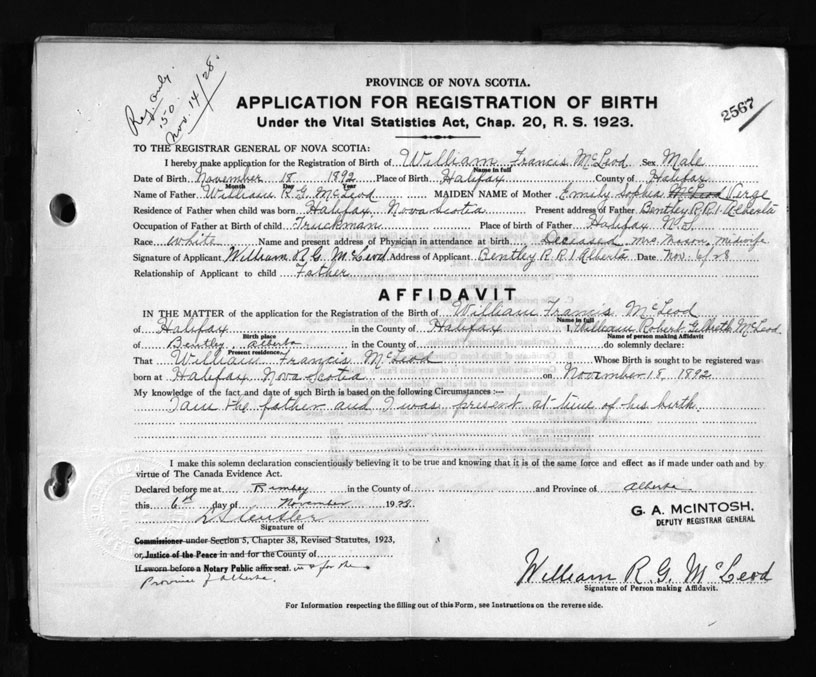 Reg. only.
.50
Nov. 14/28.
2567
PROVINCE OF NOVA SCOTIA.
APPLICATION FOR REGISTRATION OF BIRTH
Under the Vital Statistics Act, Chap. 20, R. S. 1923.
TO THE REGISTRAR GENERAL OF NOVA SCOTIA:
I hereby make application for the Registration of Birth of William Francis McLeod Sex Male
Name in full
Date of Birth November 18 1892 Place of Birth Halifax County of Halifax
Month Day Year
Name of Father William R. G. McLeod MAIDEN NAME of Mother Emily Sophia McLeod Verge
Residence of Father when child was born Halifax Nova Scotia Present address of Father Bentley R.R.1. Alberta
Occupation of Father at Birth of child Truckman Place of Birth of Father Halifax N.S.
Race white Name and present address of Physician in attendance at birth Deceased Mrs. Mason, midwife
Signature of Applicant William R.G. McLeod Address of Applicant Bentley R.R.1 Alberta Date Nov. 6/28
Relationship of Applicant to child Father
AFFIDAVIT
IN THE MATTER of the application for the Registration of the Birth of William Francis McLeod
Name in full
of Halifax in the County of Halifax I, William Robert McLeod
Birth place Name of person making Affidavit
of Bentley, alberta do solemnly declare:
Present residence
That William Francis McLeod Whose Birth is sought to be registered was
born at Halifax Nova Scotia on November 18, 1892
My knowledge of the fact and date of such Birth is based on the following Circumstances :—
I am the father and I was present at time of his birth
I make this solemn declaration conscientiously believing it to be true and knowing that it is of the same force and effect as if made under oath and by
virtue of The Canada Evidence Act.
Declared before me at Rimbey in the County of and Province of alberta
this 6th day of November 1928
G. A. McINTOSH,
DEPUTY REGISTRAR GENERAL
Signature of
Commissioner under Section 5, Chapter 38, Revised Statutes, 1923,
or, Justice of the Peace in and for the County of
If sworn before a Notary Public affix seal. in & for the
Province of Alberta.
William R G. McLeod
Signature of Person making Affidavit.
For Information respecting the filling out of this Form, see Instructions on the reverse side.